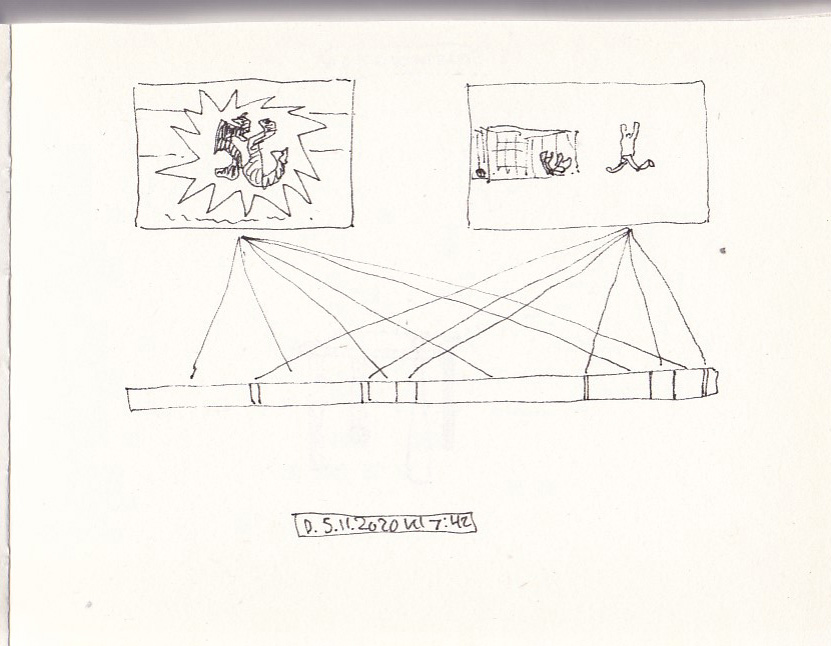 D. 5.11.2020 kl 7:42